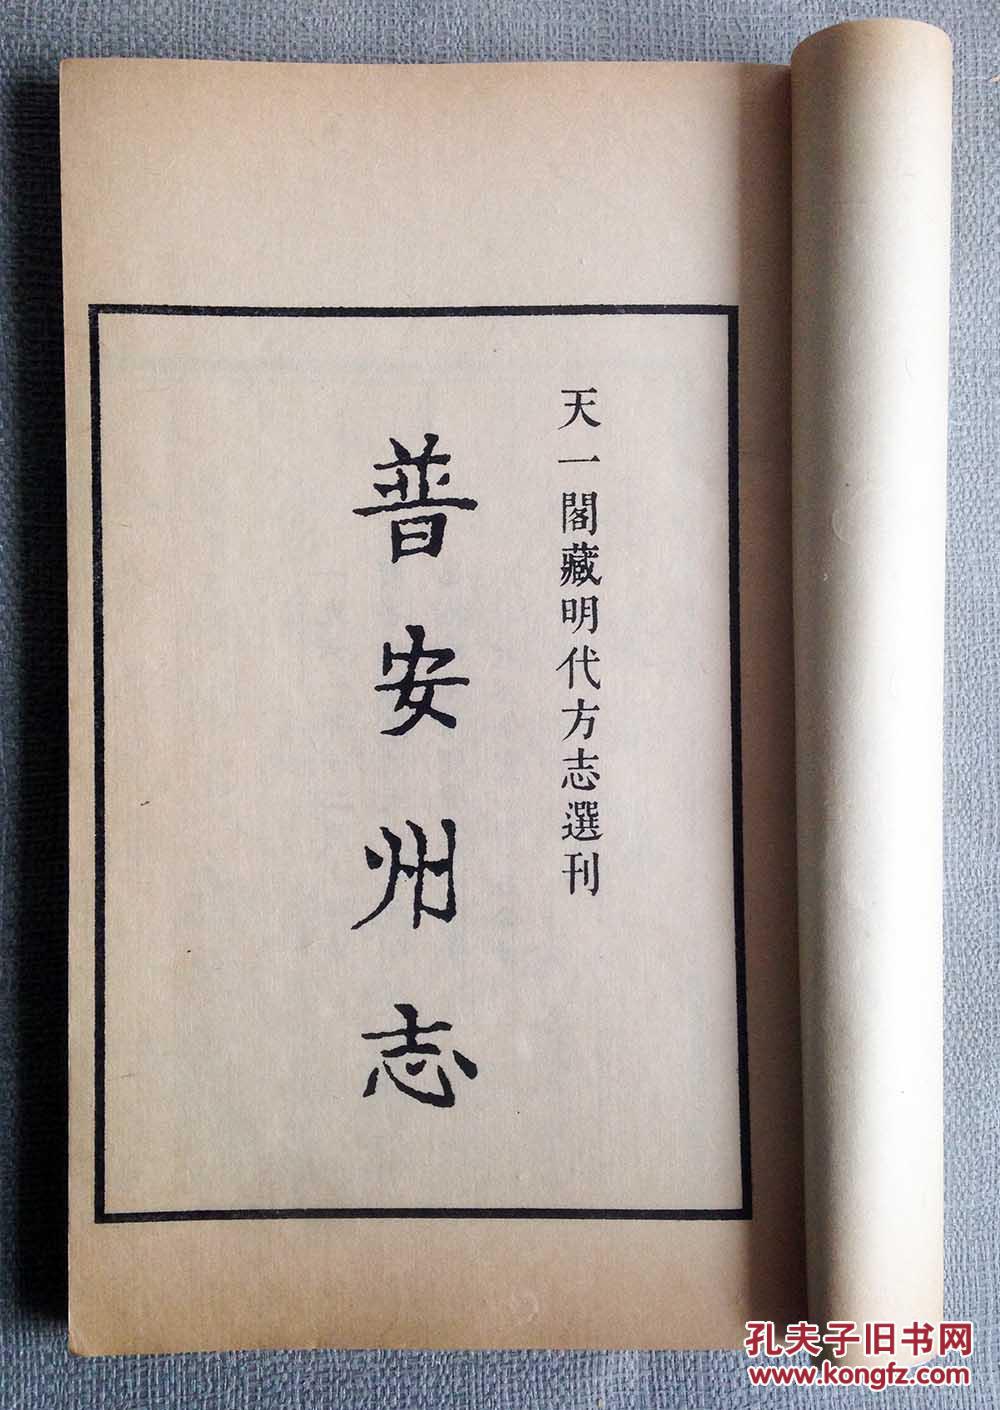 天一閣藏明代方志選刊
普安州志
孔夫子旧书网
www.kongfz.com